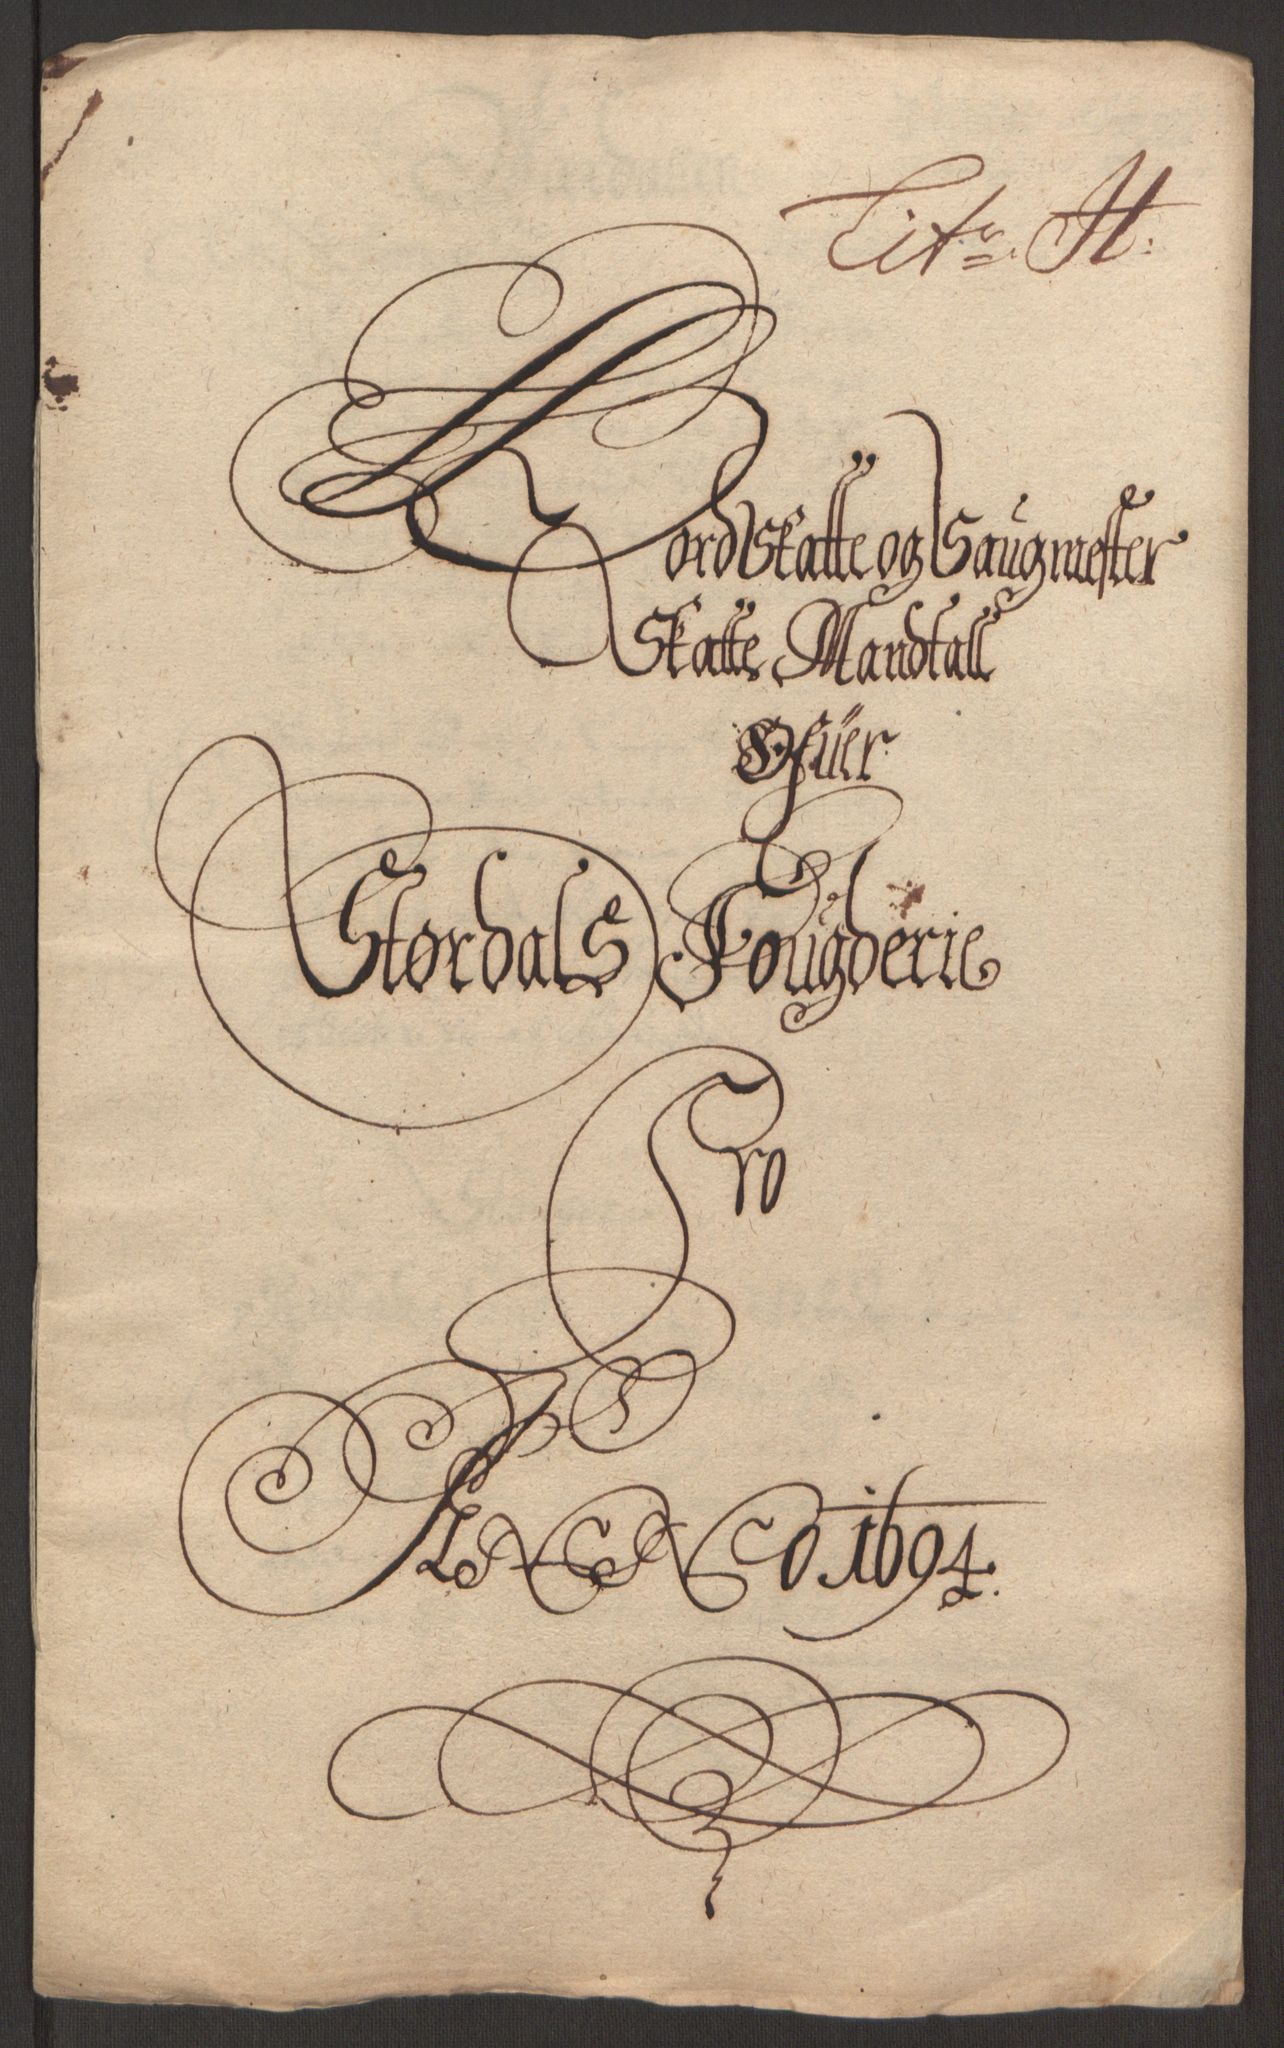 Litr. H.
Bordskatte og Saugmester
Skatte Mandtall
Ofuer
Stordals Fougderie
Pro
ANNO 1694.